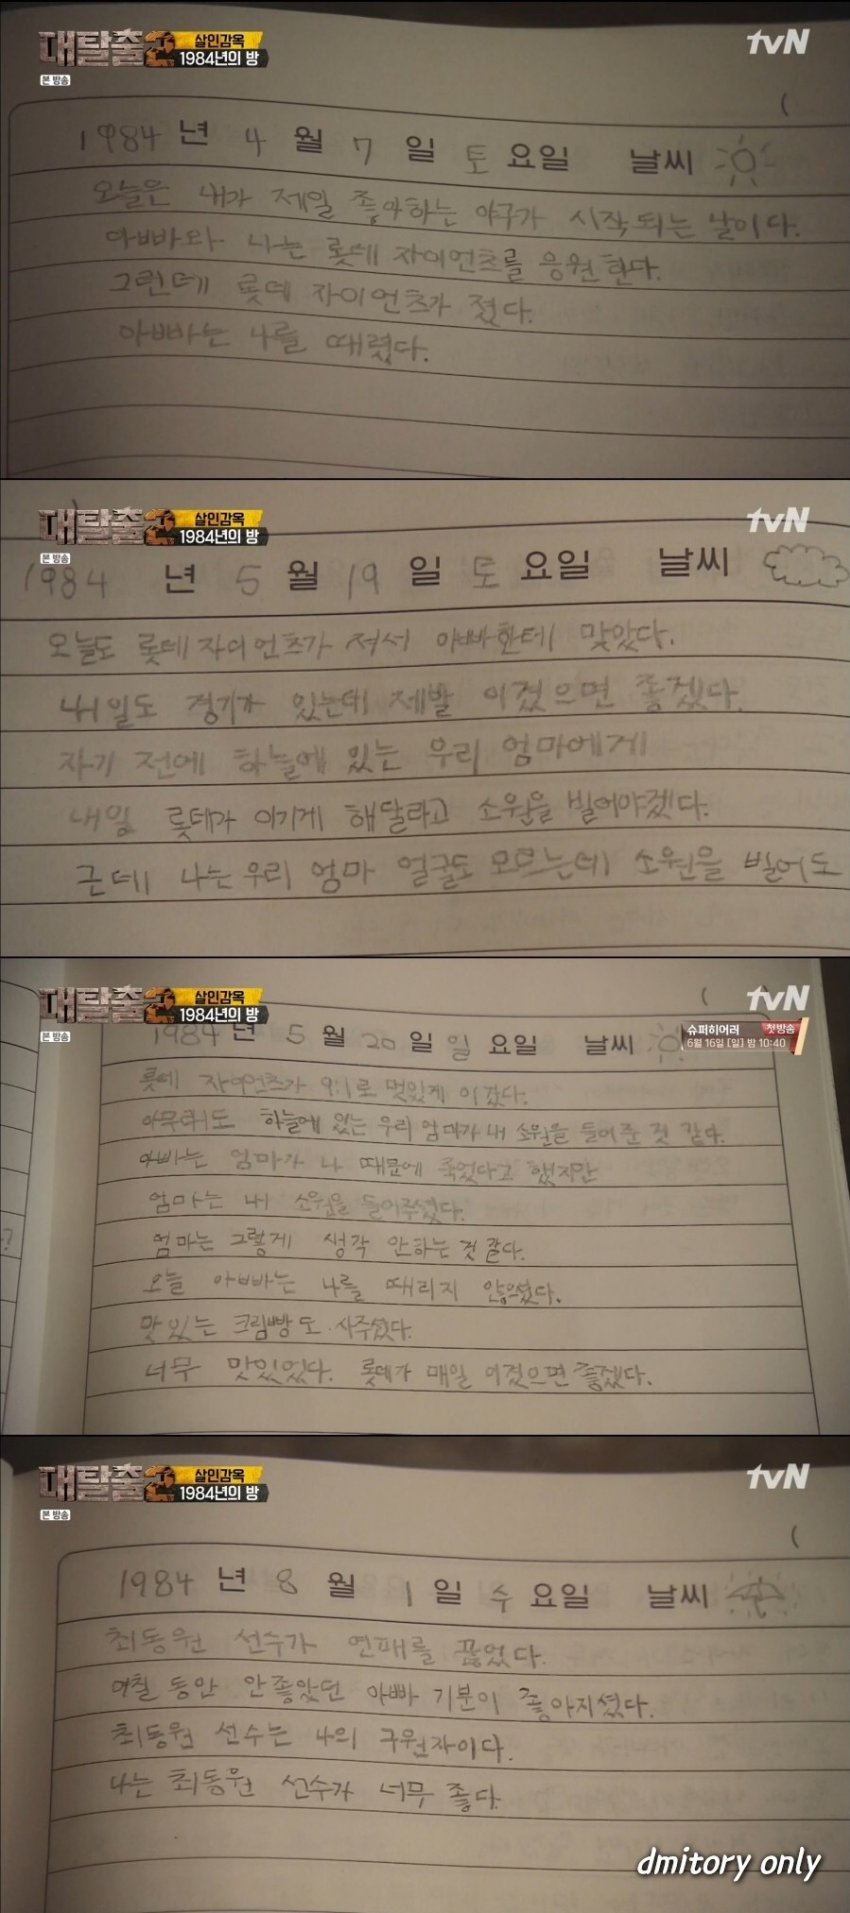 대탈출2
살인감옥
1984년의 방
본 방송
tvN
1984 년 4 월 7 일 토 요일 날씨
오늘은 내가 제일 좋아하는 야구가 시작되는 날이다.
아빠와 나는 롯데 자이언츠를 응원한다.
그런데 롯데 자이언츠가 졌다.
아빠는 나를 때렸다.
대탈출2
살인감옥
1984년의 방
본 방송
tvN
1984 년 5 월 19 일 토 요일 날씨
오늘도 롯데 자이언츠가 져서 아빠한테 맞았다.
내일도 경기가 있는데 제발 이겼으면 좋겠다.
자기 전에 하늘에 있는 우리 엄마에게
내일 롯데가 이기게 해달라고 소원을 빌어야겠다.
근데 나는 우리 엄마 얼굴도 모르는데 소원을 빌어도
대탈출2
살인감옥
1984년의 방
본 방송
tvN
슈퍼히어러 첫방송
6월 16일 [일] 밤 10:40
1984 년 5 월 20 일 일 요일 날씨
롯데 자이언츠가 9:1로 멋있게 이겼다.
아무래도 하늘에 있는 우리 엄마가 내 소원을 들어준 것 같다.
아빠는 엄마가 나 때문에 죽었다고 했지만
엄마는 내 소원을 들어주셨다.
엄마는 그렇게 생각 안하는 것 같다.
오늘 아빠는 나를 때리지 않으셨다.
맛있는 크림빵도 사주셨다.
너무 맛있었다. 롯데가 매일 이겼으면 좋겠다.
?
대탈출2
살인감옥
1984년의 방
본 방송
tvN
1984 년 8 월 1 일 수 요일 날씨
최동원 선수가 연패를 끊었다.
며칠 동안 안좋았던 아빠 기분이 좋아지셨다.
최동원 선수는 나의 구원자이다.
나는 최동원 선수가 너무 좋다.
dmitory only